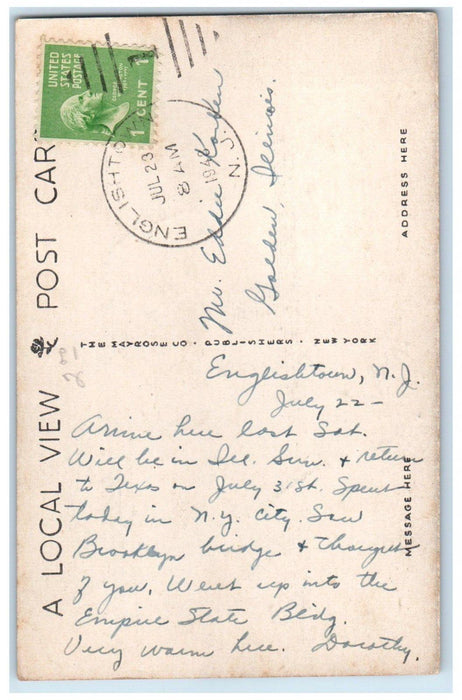 A LOCAL VIEW POST CAR
UNITED
STATES
POSTAGE
1 CENT 1
ENGLISHTO
JUL 23
8 AM
N. J.
Mr. Eddie
Golden, Illinois.
ADDRESS HERE
THE MAYROSE CO · PUBLISHERS · NEW YORK
MESSAGE HERE
Englishtown, N.J.
July 22 –
Arrive here last Sat.
Will be in Ill. Sun. + return
to Texas on July 31st. Spent
today in N.Y. City. Saw
Brooklyn bridge + thought
of you. Went up into the
Empire State Bldg.
Very warm here. Dorothy.